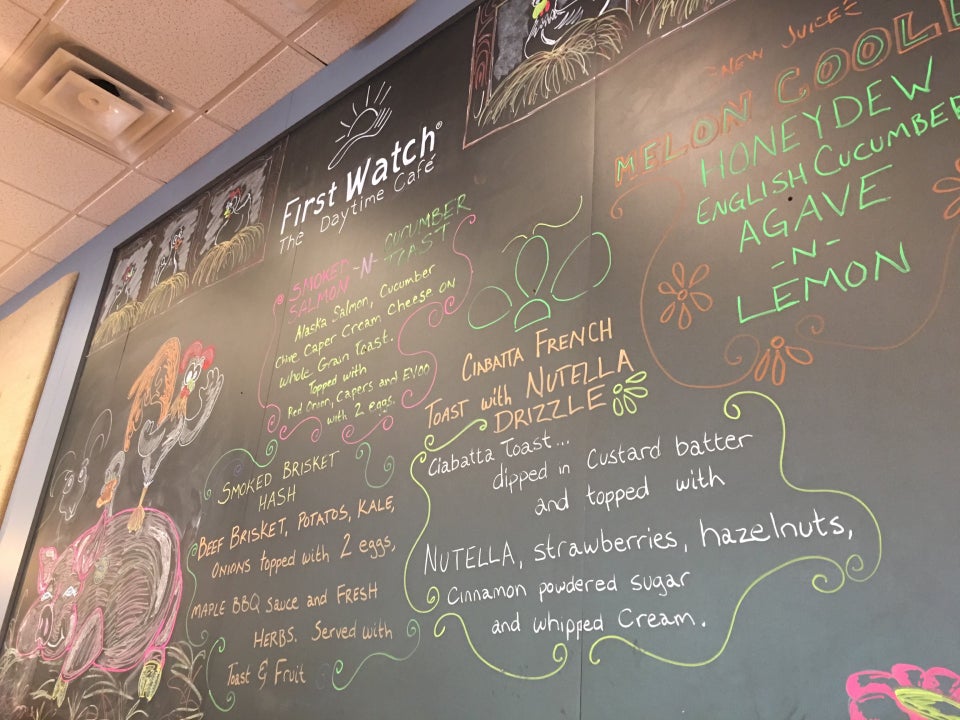 First Watch®
The Daytime Café
SMOKED SALMON -N- CUCUMBER TOAST
Alaska Salmon, Cucumber
Chive Caper Cream Cheese on
Whole Grain Toast.
Topped with
Red Onion, Capers and EVOO
with 2 eggs.
SMOKED BRISKET
HASH
BEEF BRISKET, POTATOS, KALE,
ONIONS topped with 2 eggs,
MAPLE BBQ sauce and FRESH
HERBS. Served with
Toast & Fruit
CIABATTA FRENCH
TOAST with NUTELLA
DRIZZLE
Ciabatta Toast...
dipped in Custard batter
and topped with
NUTELLA, strawberries, hazelnuts,
Cinnamon powdered sugar
and whipped Cream.
NEW JUICE
MELON COOL
HONEYDEW
ENGLISH CUCUMBER
AGAVE
-N-
LEMON